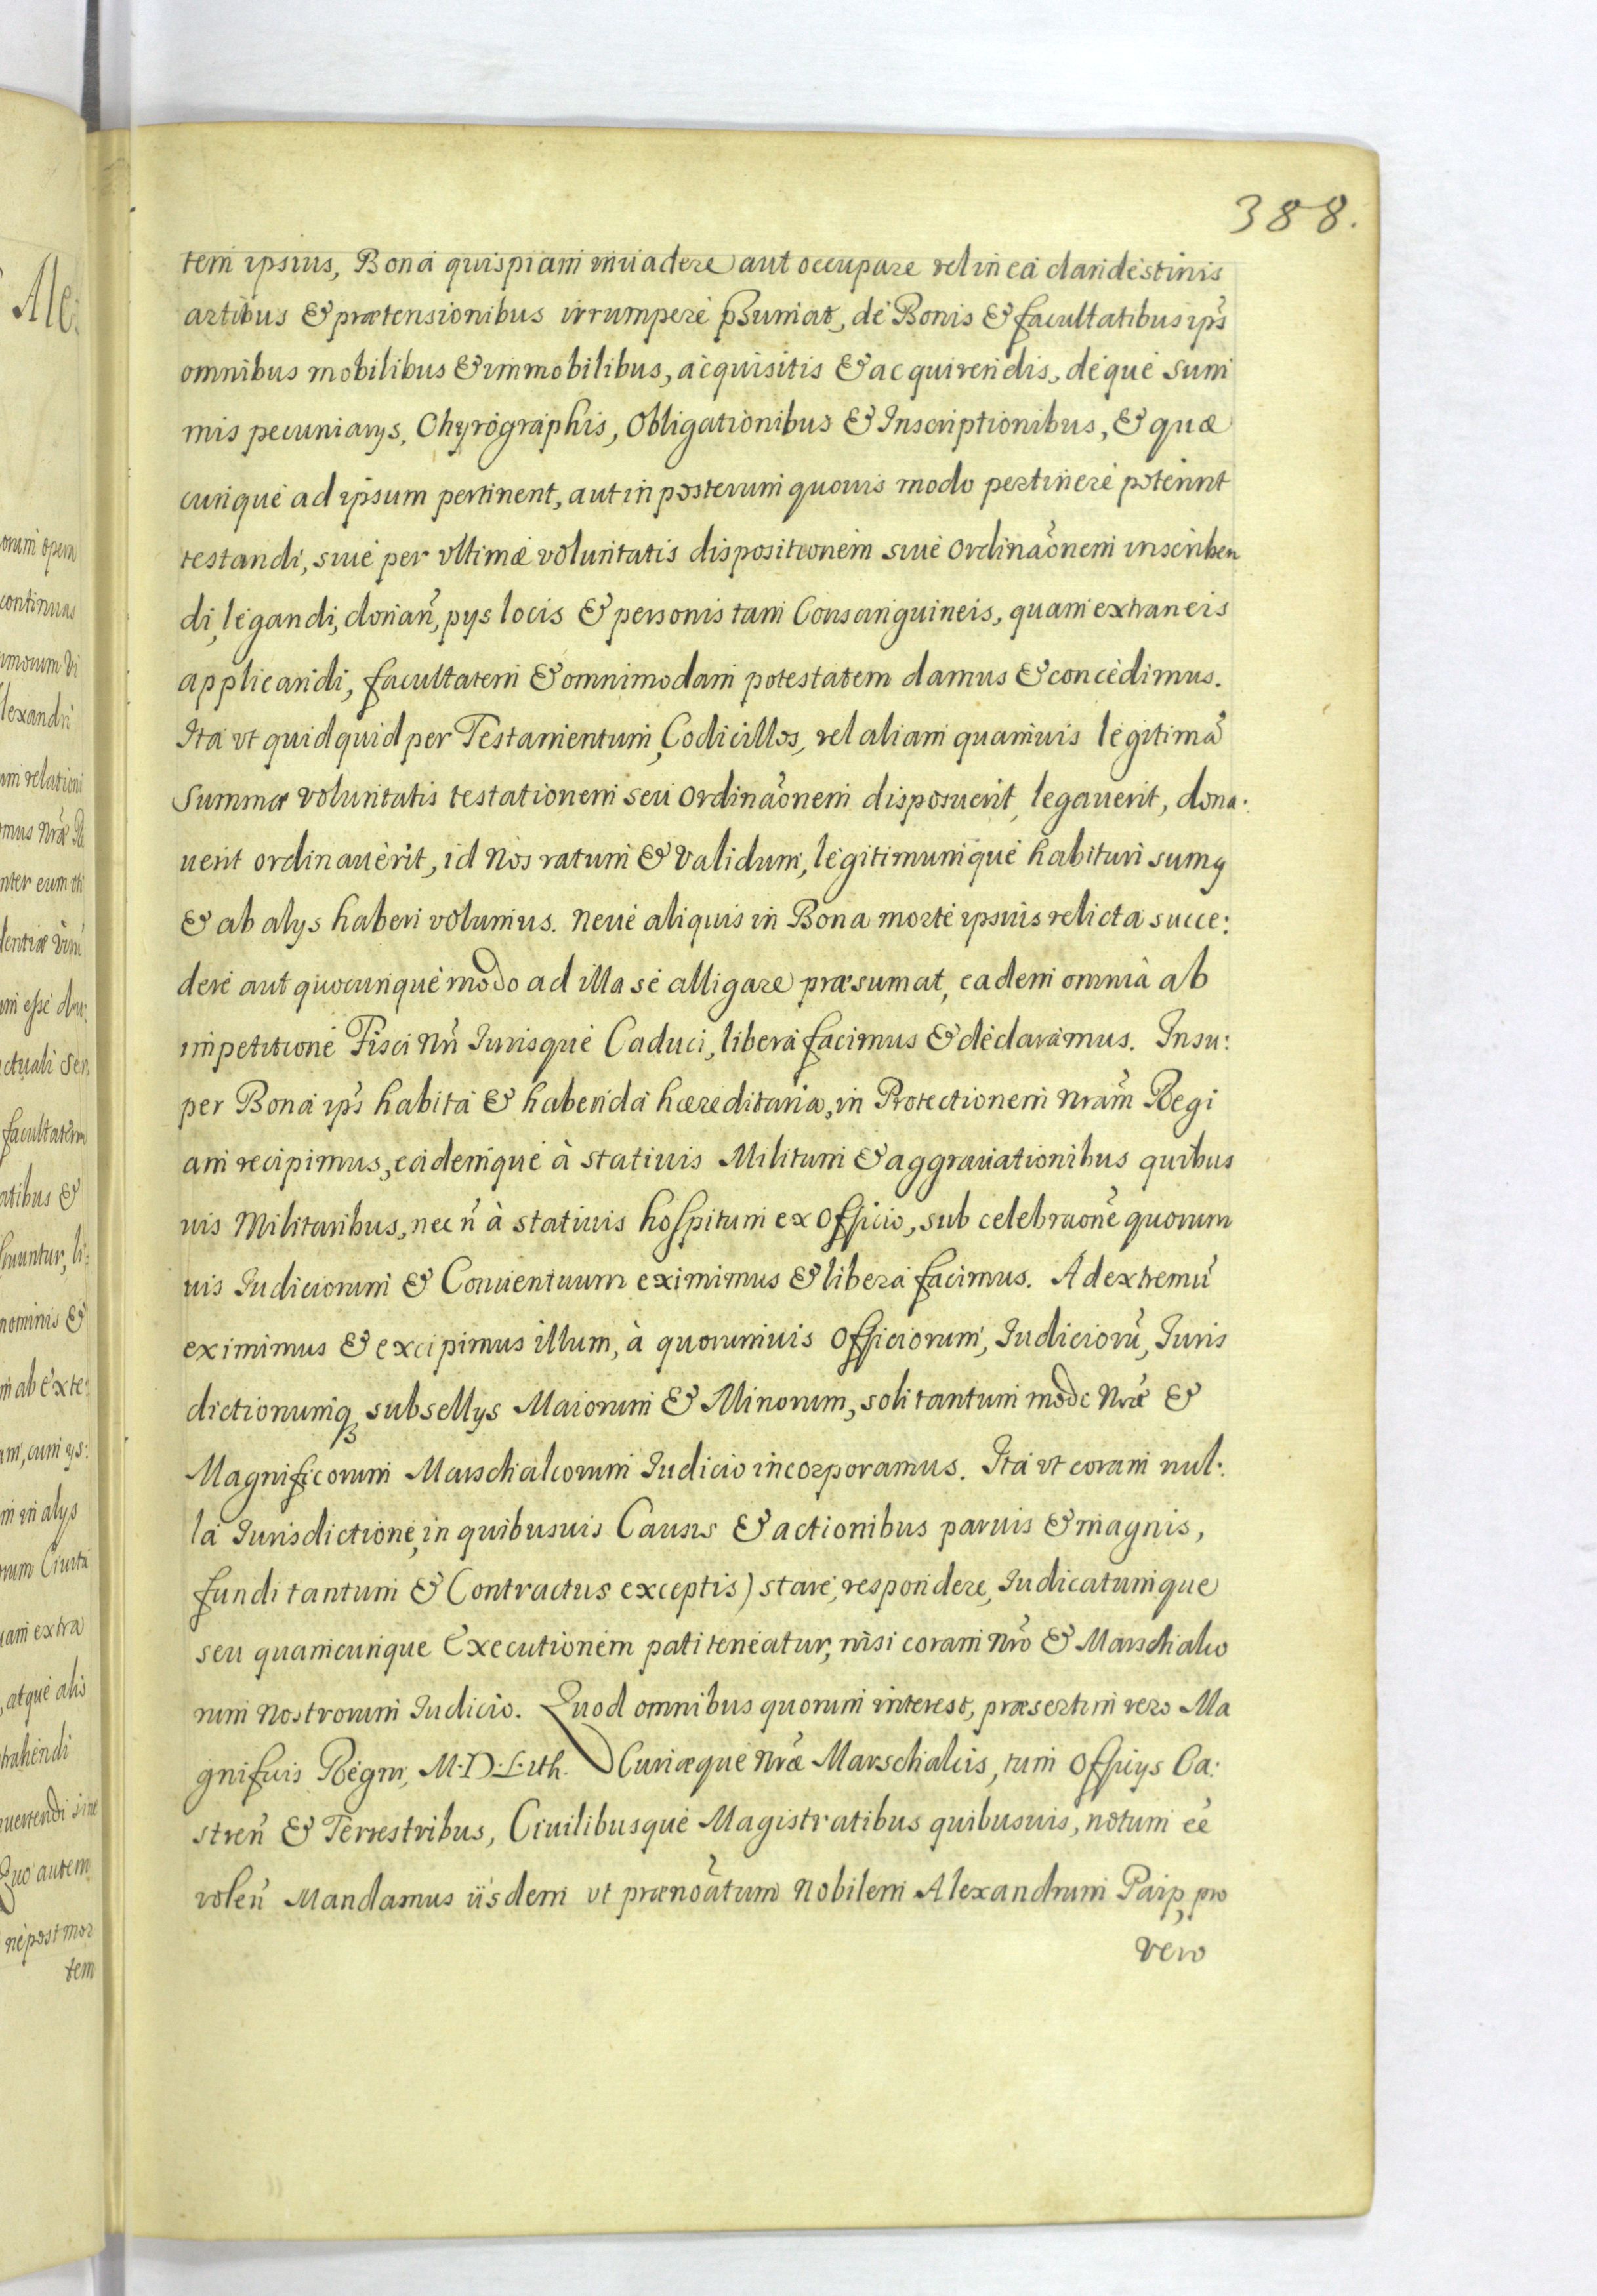 388.
tem ipsius, Bona quispiam inuadere aut occupare vel in ea clandestinis
artibus & prætensionibus irrumpere p̄sumat, de Bonis & facultatibus ip̄s
omnibus mobilibus & immobilibus, acquisitis & acquirendis, deque sum
mis pecuniarys, Chyrographis, Obligationibus & Inscriptionibus, & quæ
cunque ad ipsum pertinent, aut in posterum quouis modo pertinere poterint
testandi, siue per vltimæ voluntatis dispositionem siue Ordinaõnem inscriben
di, legandi, donañ, pys locis & personis tam Consanguineis, quam extraneis
applicandi, facultatem & omnimodam potestatem damus & concedimus.
Ita vt quidquid per Testamentum, Codicillos, vel aliam quamuis legitimã
Summæ voluntatis testationem seu Ordinaõnem disposuerit, legauerit, dona:
uerit ordinauerit, id Nos ratum & validum, legitimumque habituri sumꝰ
& ab alys haberi volumus. Neue aliquis in Bona morte ipsius relicta succe:
dere aut quocunque modo ad illa se alligare præsumat, eadem omnia ab
impetitione Fisci Nr̃i Iurisque Caduci, libera facimus & declaramus. Insu:
per Bona ip̄s habita & habenda hæreditaria, in Protectionem Nram̃ Regi
am recipimus, eademque à statiuis Militum & aggrauationibus quibus
uis Militaribus, nec ñ à statiuis hospitum ex Officio, sub celebraõne quorum
uis Iudiciorum & Conuentuum eximimus & libera facimus. Ad extremũ
eximimus & excipimus illum, à quorumuis Officiorum, Iudiciorũ, Iuris
dictionumq3 subsellys Maiorum & Minorum, soli tantum modo Nræ̃ &
Magnificorum Marschalcorum Iudicio incorporamus. Ita vt coram nul:
la Iurisdictione, in quibusuis Causis & actionibus paruis & magnis,
fundi tantum & Contractus exceptis) stare, respondere, Iudicatumque
seu quamcunque Executionem pati teneatur, nisi coram Nrõ & Marschalco
rum Nostrorum Iudicio. Quod omnibus quorum interest, præsertim vero Ma
gnificis Regni, M. D. Lith. Curiæque Nræ̃ Marschalcis, tum Officys Ca:
streñ & Terrestribus, Ciuilibusque Magistratibus quibusuis, notum eẽ
voleñ Mandamus iisdem vt prænoãtum Nobilem Alexandrum Paip, pro
vero